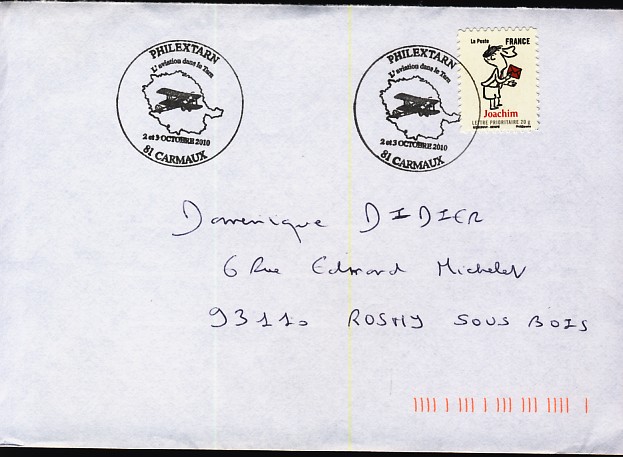 PHILEXTARN
L'aviation dans le Tarn
2 et 3 OCTOBRE 2010
81 CARMAUX
PHILEXTARN
L'aviation dans le Tarn
2 et 3 OCTOBRE 2010
81 CARMAUX
La Poste FRANCE
Joachim
LETTRE PRIORITAIRE 20 g
Dominique DIDIER
6 Rue Edmond Michelet
93110 ROSNY SOUS BOIS